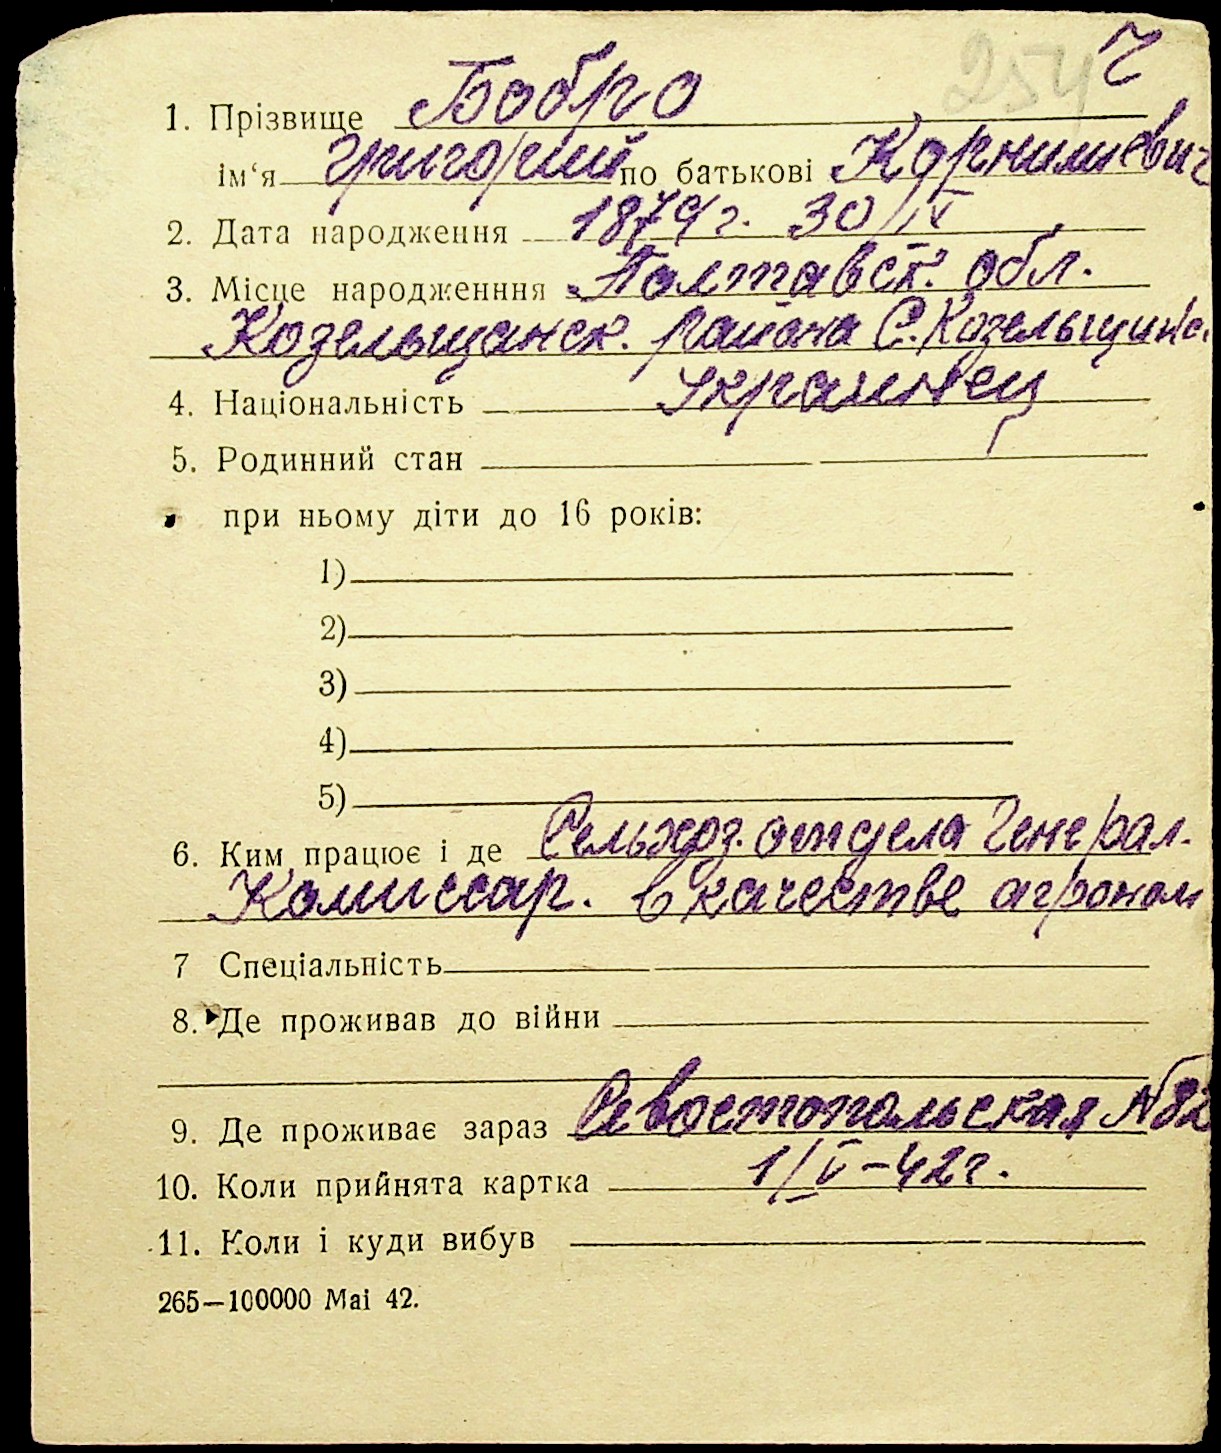 254 Ч
1. Прізвище Бобро
ім‘я Григорий по батькові Корнилиевич
2. Дата народження 1879 г. 30/IV
3. Місце народженння Полтавск. обл.
Козельщанск. района С. Козельщина
4. Національність Украинец
5. Родинний стан
при ньому діти до 16 років:
1)
2)
3)
4)
5)
6. Ким працює і де Сельхоз. отдела Генерал.
Комиссар. в качестве агроном
7 Спеціальність
8. Де проживав до війни
9. Де проживає зараз Севостопольская №82
10. Коли прийнята картка 1/V–42 г.
11. Коли і куди вибув
265—100000 Mai 42.